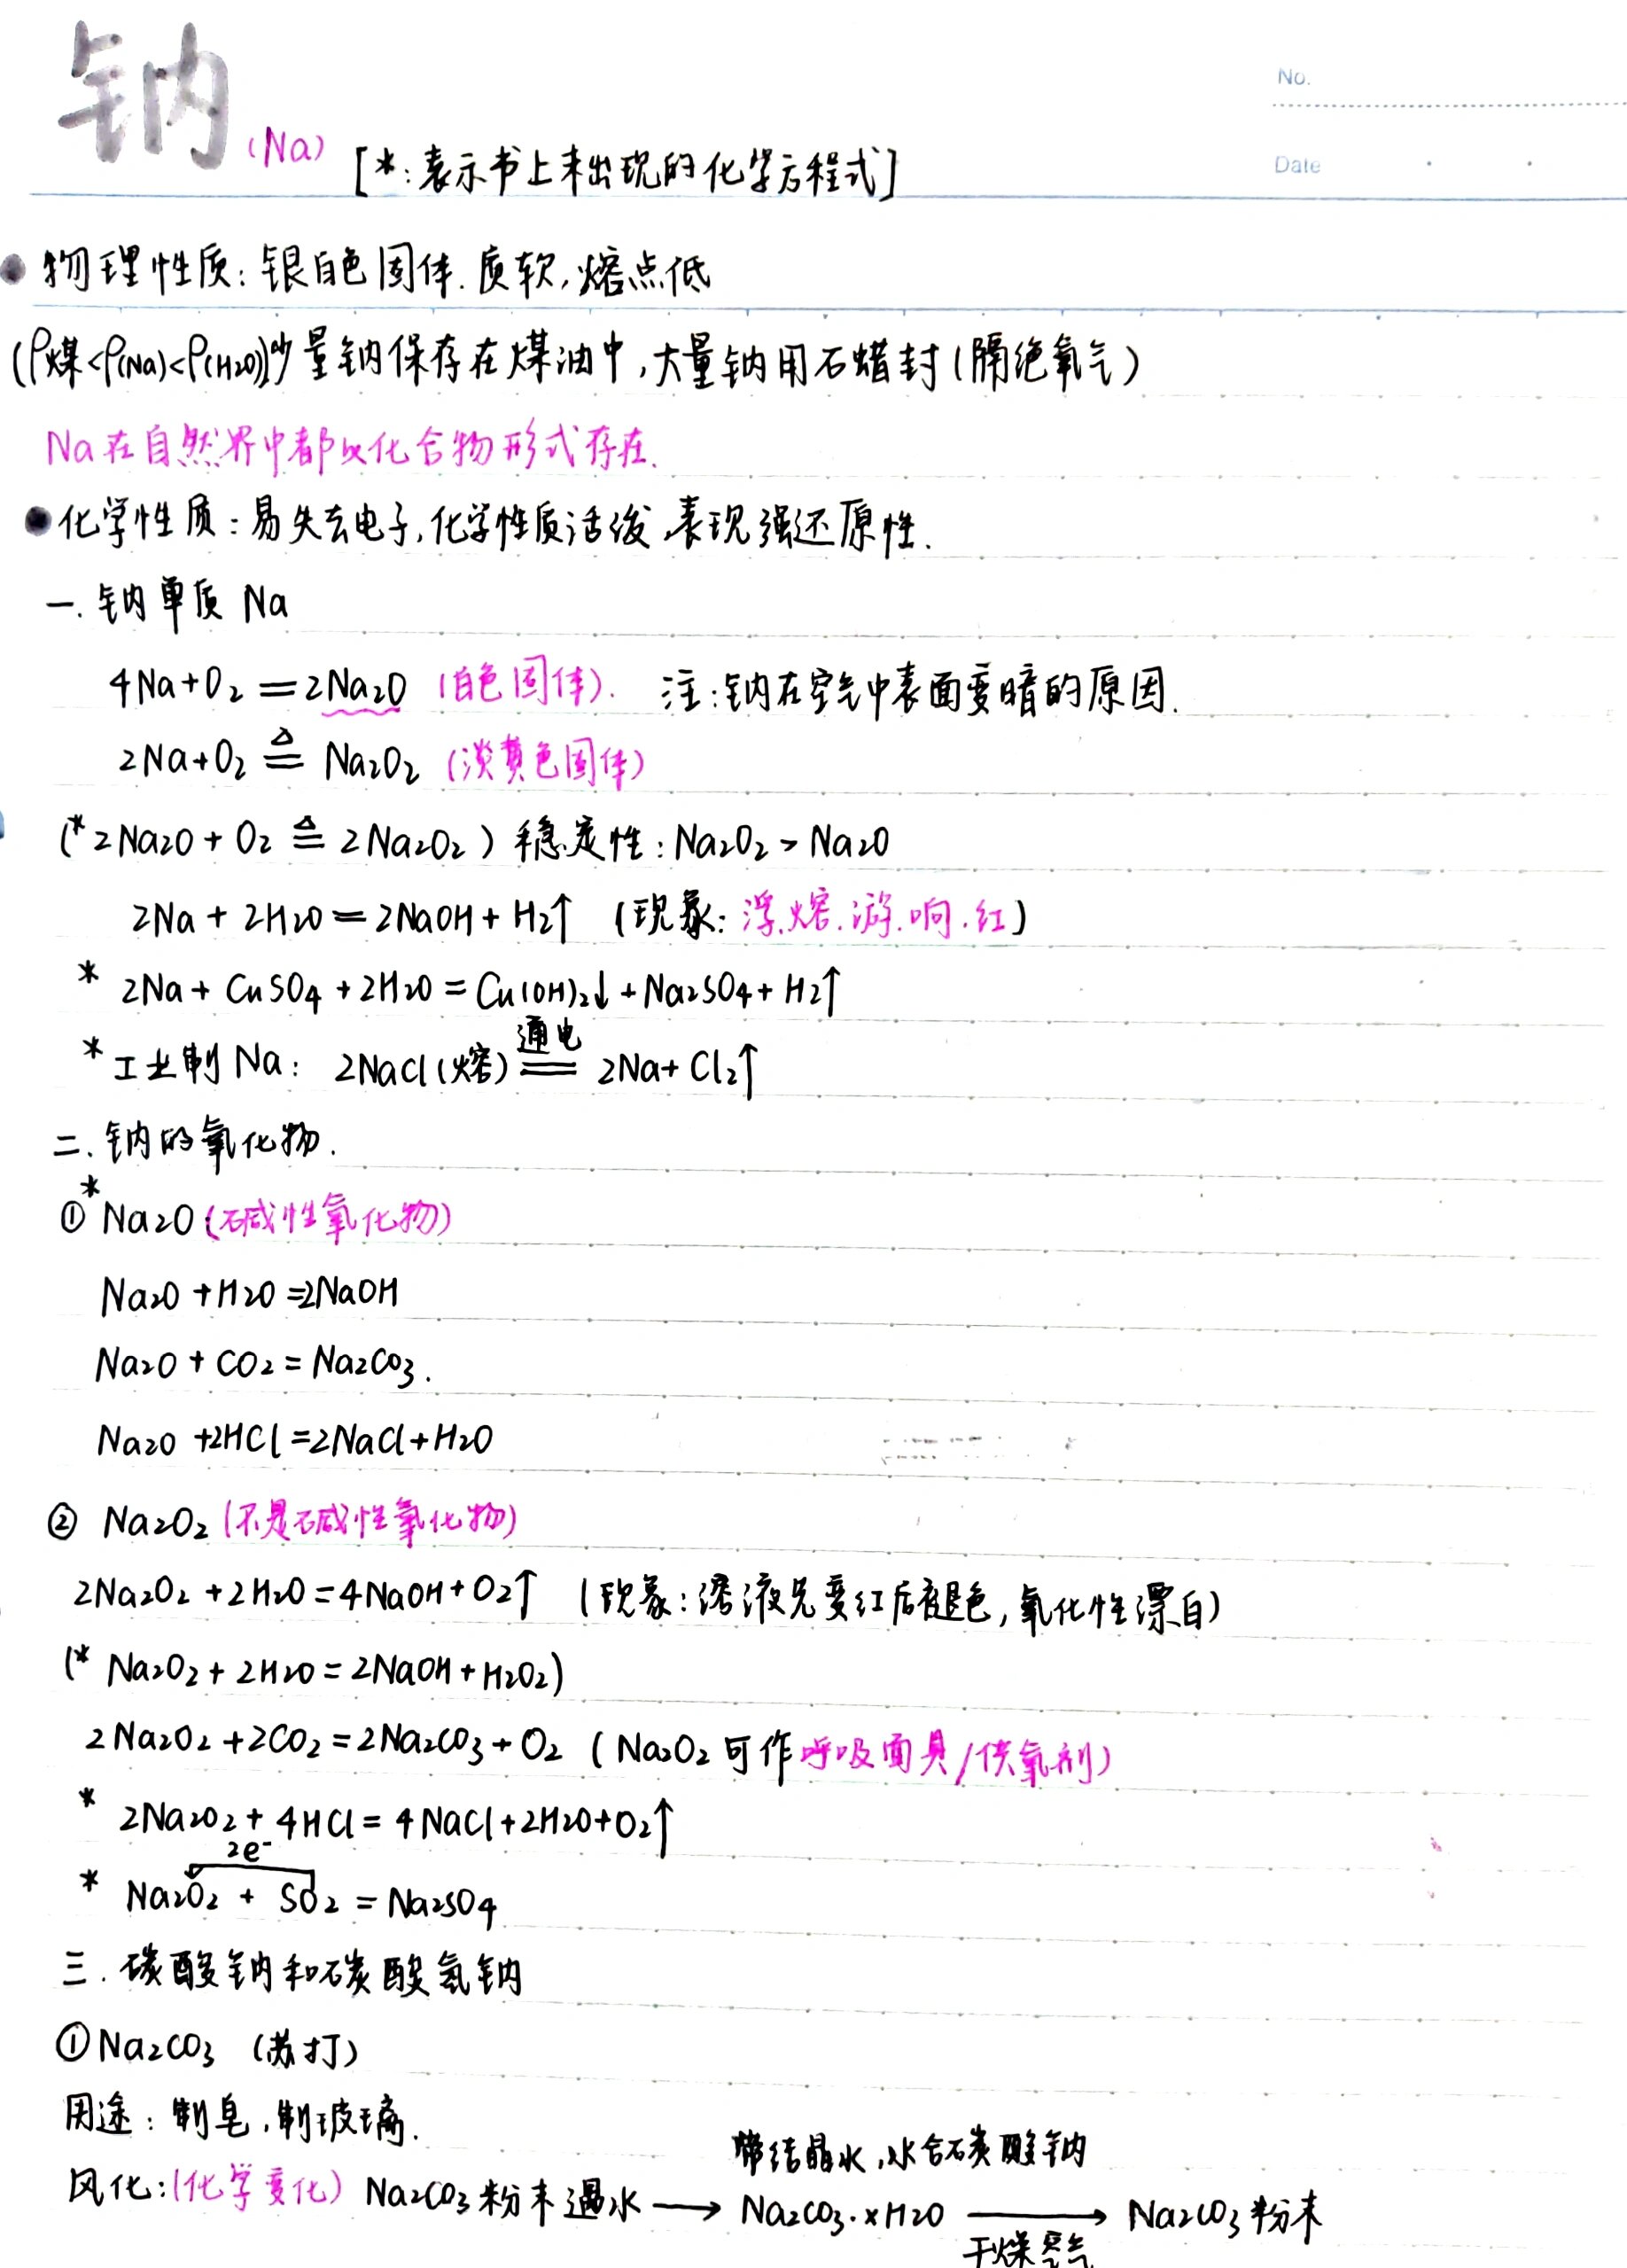 钠(Na) [*:表示书上未出现的化学方程式]
No.
Date
● 物理性质：银白色固体.质软,熔点低
(ρ煤<ρ(Na)<ρ(H2O))少量钠保存在煤油中,大量钠用石蜡封(隔绝氧气)
Na在自然界中都以化合物形式存在.
●化学性质：易失去电子,化学性质活泼,表现强还原性.
一.钠单质 Na
4Na+O₂=2Na₂O (白色固体). 注:钠在空气中表面变暗的原因.
2Na+O₂ ≜ Na₂O₂ (淡黄色固体)
(*2Na₂O+O₂ ≜ 2Na₂O₂) 稳定性:Na₂O₂>Na₂O
2Na+2H₂O=2NaOH+H₂↑ (现象:浮.熔.游.响.红)
* 2Na+CuSO₄+2H₂O=Cu(OH)₂↓+Na₂SO₄+H₂↑
通电
* 工业制Na: 2NaCl(熔)══2Na+Cl₂↑
二.钠的氧化物.
①*Na₂O(碱性氧化物)
Na₂O+H₂O=2NaOH
Na₂O+CO₂=Na₂CO₃.
Na₂O+2HCl=2NaCl+H₂O
② Na₂O₂(不是碱性氧化物)
2Na₂O₂+2H₂O=4NaOH+O₂↑ (现象:溶液先变红后褪色,氧化性漂白)
(* Na₂O₂+2H₂O=2NaOH+H₂O₂)
2Na₂O₂+2CO₂=2Na₂CO₃+O₂ (Na₂O₂可作呼吸面具/供氧剂)
* 2Na₂O₂+4HCl=4NaCl+2H₂O+O₂↑
2e⁻
* Na₂O₂+SO₂=Na₂SO₄
三.碳酸钠和碳酸氢钠
①Na₂CO₃ (苏打)
用途:制皂,制玻璃.
带结晶水,水合碳酸钠
风化:(化学变化) Na₂CO₃粉末遇水→Na₂CO₃·xH₂O→Na₂CO₃粉末
干燥空气